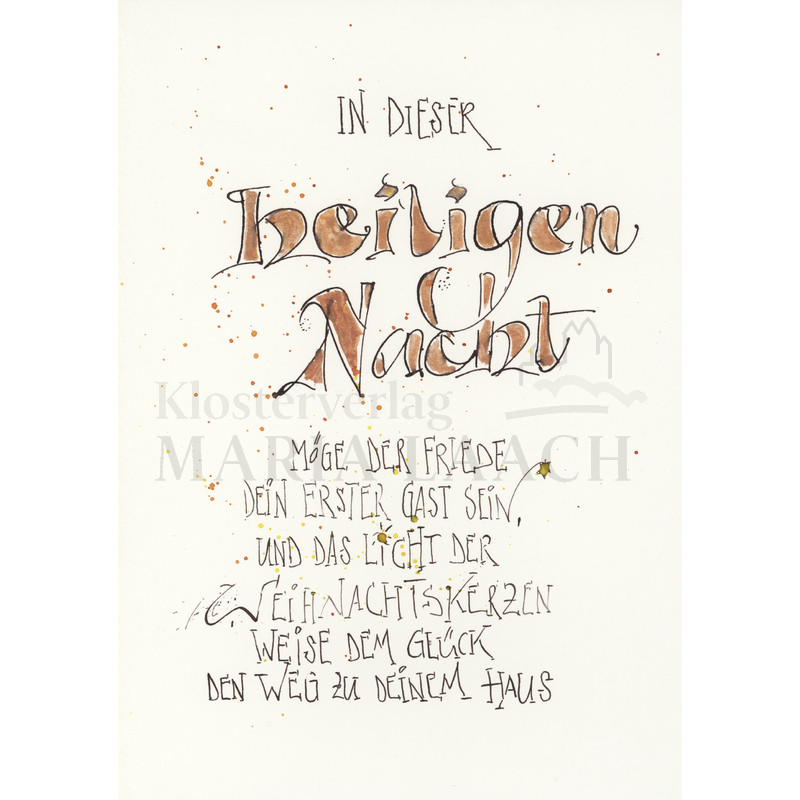 IN DIESER
heiligen
Nacht
Klosterverlag
MARIA LAACH
MÖGE DER FRIEDE
DEIN ERSTER GAST SEIN,
UND DAS LICHT DER
WEIHNACHTSKERZEN
WEISE DEM GLÜCK
DEN WEG ZU DEINEM HAUS